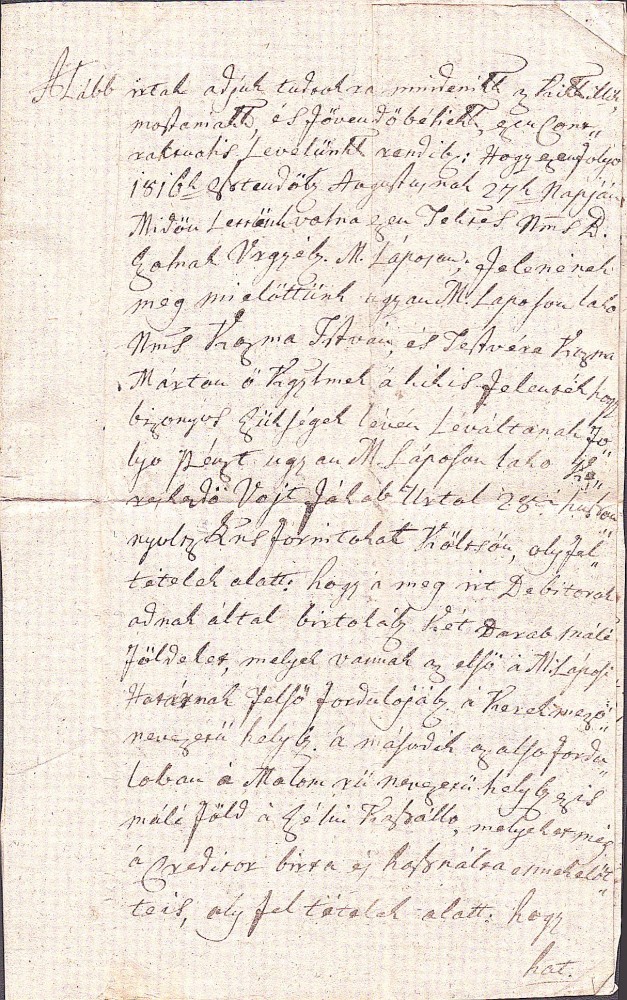 Alább irtak adjuk tudtokra mindenikk az kikk illik,
mostaniakk, és Jövendőbéliekk, ezen Cont„
raktualis Levelünkk rendib; Hogy ezen folyo
1816k Esztendőb Augustusnak 27k Napján
Midőn Lettünk volna ezen Tekés Nms D.
Zalnak Vrgyéb. M. Láposon, Jelenének
meg mielőttünk ugyan M. Laposon lako
Nms Kozma István, és Testvére Kozma
Márton ő Kgylmek á kik is Jelenték hogy
bizonyos szükségek lévén Léváltanak Fo„
lyo pénzt ugyan M. Láposon lako Ke„
reskedő Vojt Jákab Urtol 28. i. huszon
nyoltz Rns forintokat Költsön, oly fel„
tételek alatt: hogy á meg irt Debitorok
adnak által birtokáb Két Darab málé
földeket, melyek vannak az első á M. Láposi
Határnak felső fordulojáb á Kerekmező
nevezetű helyb. á második az alsó fordu„
loban á Malom nevezetű helyb ez is
málé föld á, melyeket még
á Creditor birta és használta ennekelőt„
te is, oly fel tételek alatt: hogy
hat.